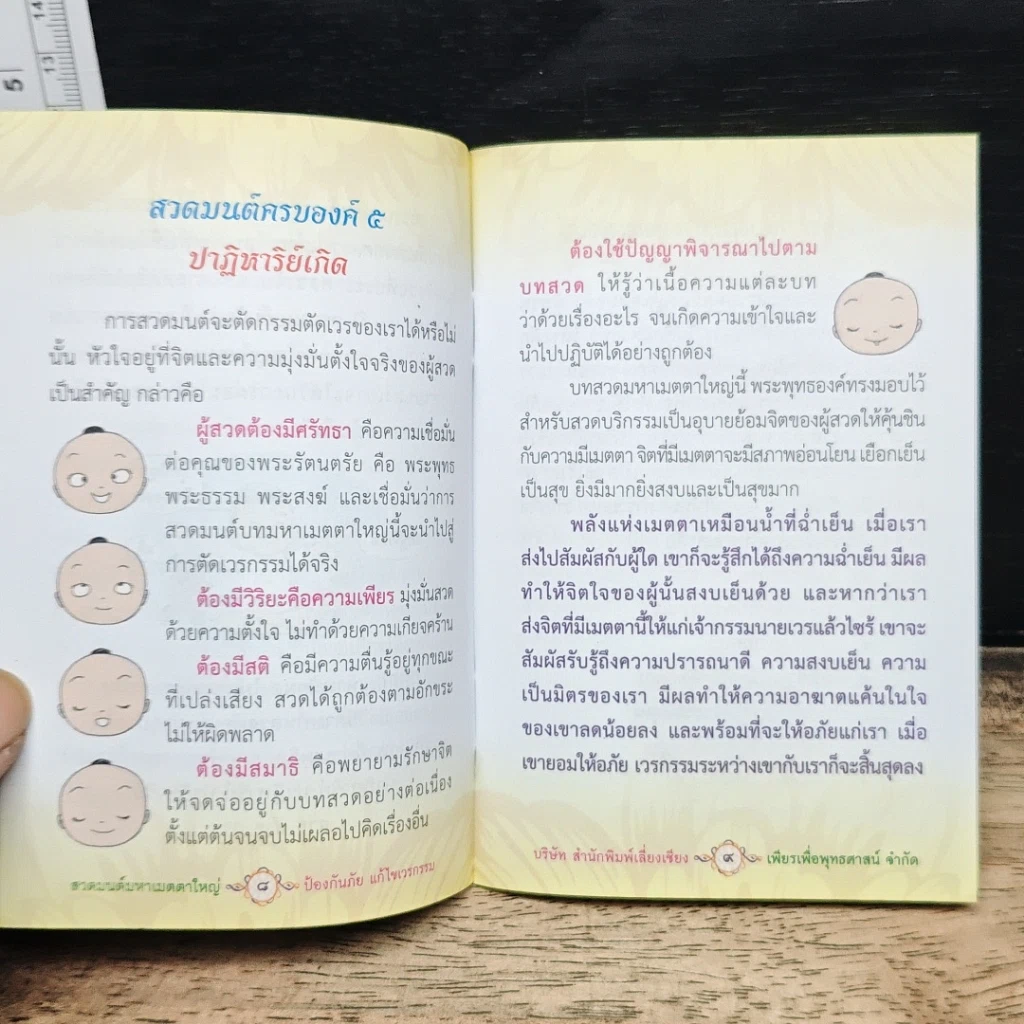 14
13
5
สวดมนต์ครบองค์ ๕
ปาฏิหาริย์เกิด
การสวดมนต์จะตัดกรรมตัดเวรของเราได้หรือไม่
นั้น หัวใจอยู่ที่จิตและความมุ่งมั่นตั้งใจจริงของผู้สวด
เป็นสำคัญ กล่าวคือ
ผู้สวดต้องมีศรัทธา คือความเชื่อมั่น
ต่อคุณของพระรัตนตรัย คือ พระพุทธ
พระธรรม พระสงฆ์ และเชื่อมั่นว่าการ
สวดมนต์บทมหาเมตตาใหญ่นี้จะนำไปสู่
การตัดเวรกรรมได้จริง
ต้องมีวิริยะคือความเพียร มุ่งมั่นสวด
ด้วยความตั้งใจ ไม่ทำด้วยความเกียจคร้าน
ต้องมีสติ คือมีความตื่นรู้อยู่ทุกขณะ
ที่เปล่งเสียง สวดได้ถูกต้องตามอักขระ
ไม่ให้ผิดพลาด
ต้องมีสมาธิ คือพยายามรักษาจิต
ให้จดจ่ออยู่กับบทสวดอย่างต่อเนื่อง
ตั้งแต่ต้นจนจบไม่เผลอไปคิดเรื่องอื่น
สวดมนต์มหาเมตตาใหญ่ ๘ ป้องกันภัย แก้ไขเวรกรรม
ต้องใช้ปัญญาพิจารณาไปตาม
บทสวด ให้รู้ว่าเนื้อความแต่ละบท
ว่าด้วยเรื่องอะไร จนเกิดความเข้าใจและ
นำไปปฏิบัติได้อย่างถูกต้อง
บทสวดมหาเมตตาใหญ่นี้ พระพุทธองค์ทรงมอบไว้
สำหรับสวดบริกรรมเป็นอุบายย้อมจิตของผู้สวดให้คุ้นชิน
กับความมีเมตตา จิตที่มีเมตตาจะมีสภาพอ่อนโยน เยือกเย็น
เป็นสุข ยิ่งมีมากยิ่งสงบและเป็นสุขมาก
พลังแห่งเมตตาเหมือนน้ำที่ฉ่ำเย็น เมื่อเรา
ส่งไปสัมผัสกับผู้ใด เขาก็จะรู้สึกได้ถึงความฉ่ำเย็น มีผล
ทำให้จิตใจของผู้นั้นสงบเย็นด้วย และหากว่าเรา
ส่งจิตที่มีเมตตานี้ให้แก่เจ้ากรรมนายเวรแล้วไซร้ เขาจะ
สัมผัสรับรู้ถึงความปรารถนาดี ความสงบเย็น ความ
เป็นมิตรของเรา มีผลทำให้ความอาฆาตแค้นในใจ
ของเขาลดน้อยลง และพร้อมที่จะให้อภัยแก่เรา เมื่อ
เขายอมให้อภัย เวรกรรมระหว่างเขากับเราก็จะสิ้นสุดลง
บริษัท สำนักพิมพ์เลี่ยงเชียง ๙ เพียรเพื่อพุทธศาสน์ จำกัด